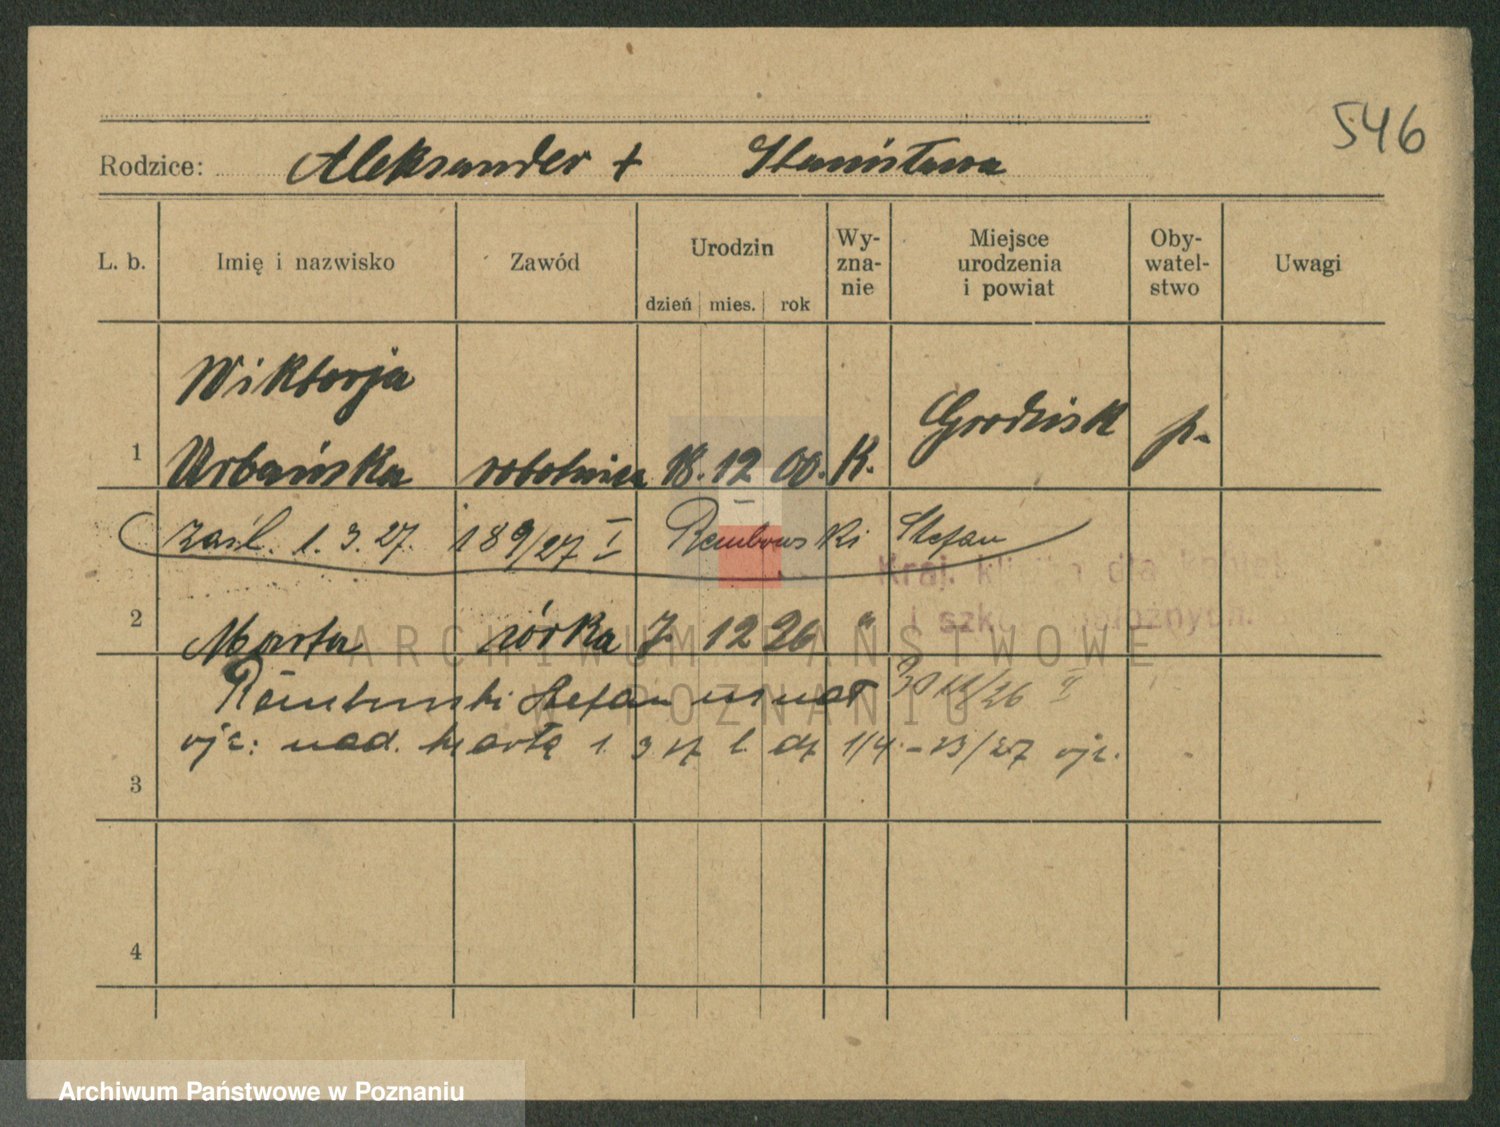 546
Rodzice: Aleksander + Stanisława
L. b. Imię i nazwisko Zawód Urodzin dzień mies. rok Wy-zna-nie Miejsce urodzenia i powiat Oby-watel-stwo Uwagi
Wiktorja
1 Urbańska robotnica 18. 12 00. K. Grodzisk p.
zaśl. 1. 3. 27. 189/27 I Rembowski Stefan
Kraj. klinika dla kobiet
i szk. położnych.
2 Marta córka 7. 12 26 "
Rembowski Stefan uznał 3012/26 II
ojc: nad. Martą 1 3 27 l. dz 1/4 - 23/27 ojc.
3
4
ARCHIWUM PAŃSTWOWE
W POZNANIU
Archiwum Państwowe w Poznaniu